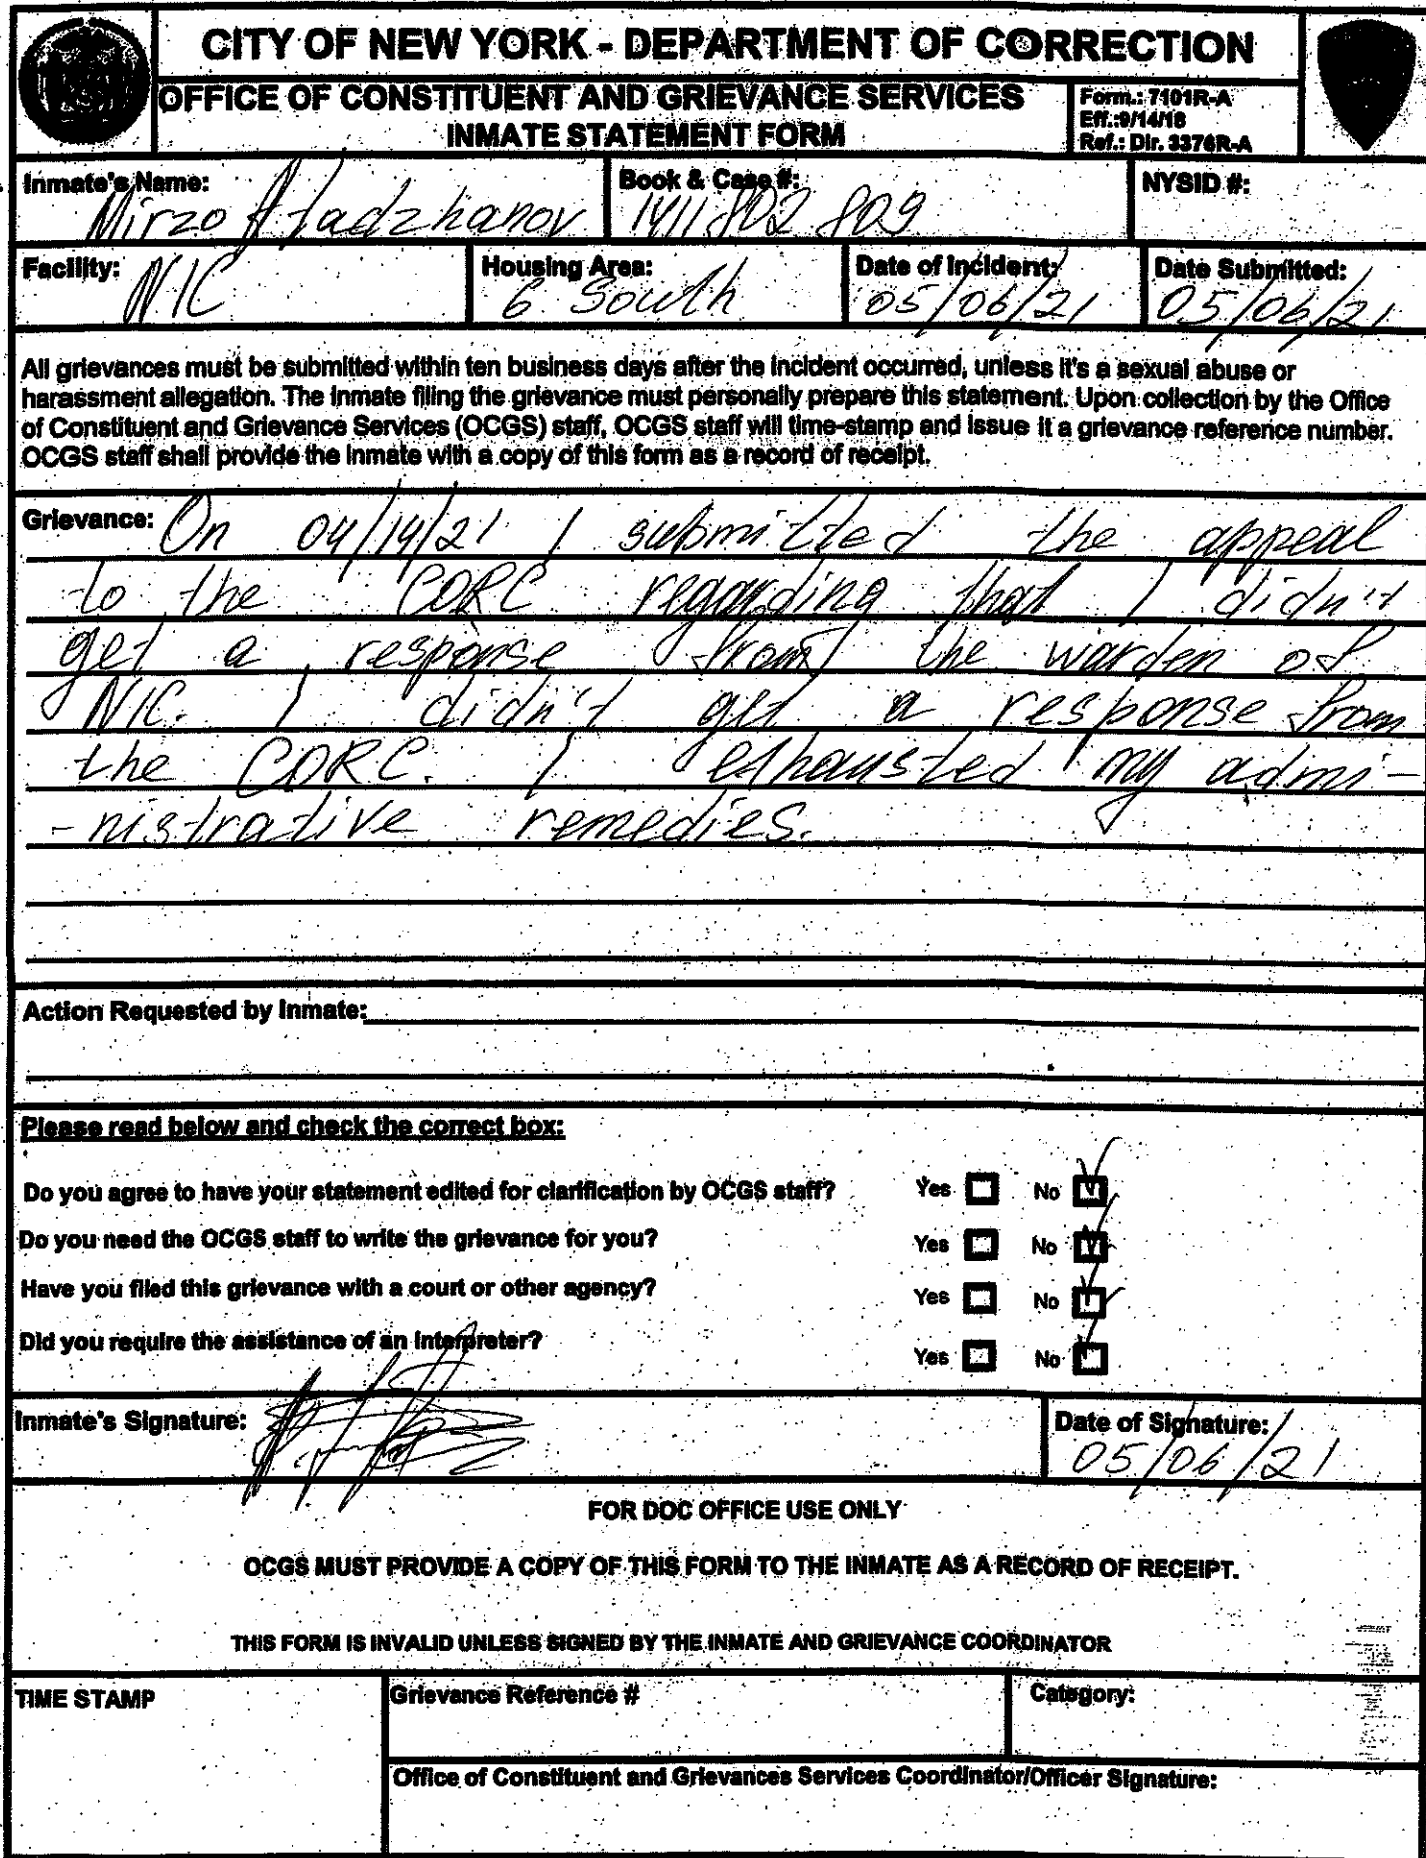 CITY OF NEW YORK - DEPARTMENT OF CORRECTION
OFFICE OF CONSTITUENT AND GRIEVANCE SERVICES
INMATE STATEMENT FORM
Form.: 7101R-A
Eff.:9/14/18
Ref.: Dir. 3376R-A
Inmate's Name: Mirzo Atadzhanov
Book & Case #: 1411 802 809
NYSID #:
Facility: NIC
Housing Area: 6 South
Date of Incident: 05/06/21
Date Submitted: 05/06/21
All grievances must be submitted within ten business days after the incident occurred, unless it's a sexual abuse or
harassment allegation. The inmate filing the grievance must personally prepare this statement. Upon collection by the Office
of Constituent and Grievance Services (OCGS) staff, OCGS staff will time-stamp and issue it a grievance reference number.
OCGS staff shall provide the inmate with a copy of this form as a record of receipt.
Grievance: On 04/14/21 I submitted the appeal
to the CORC regarding that I didn't
get a response from the warden of
NIC. I didn't get a response from
the CORC. I exhausted my admi-
-nistrative remedies.
Action Requested by Inmate:
Please read below and check the correct box:
Do you agree to have your statement edited for clarification by OCGS staff? Yes No
Do you need the OCGS staff to write the grievance for you? Yes No
Have you filed this grievance with a court or other agency? Yes No
Did you require the assistance of an interpreter? Yes No
Inmate's Signature:
Date of Signature: 05/06/21
FOR DOC OFFICE USE ONLY
OCGS MUST PROVIDE A COPY OF THIS FORM TO THE INMATE AS A RECORD OF RECEIPT.
THIS FORM IS INVALID UNLESS SIGNED BY THE INMATE AND GRIEVANCE COORDINATOR
TIME STAMP
Grievance Reference #
Category:
Office of Constituent and Grievances Services Coordinator/Officer Signature: